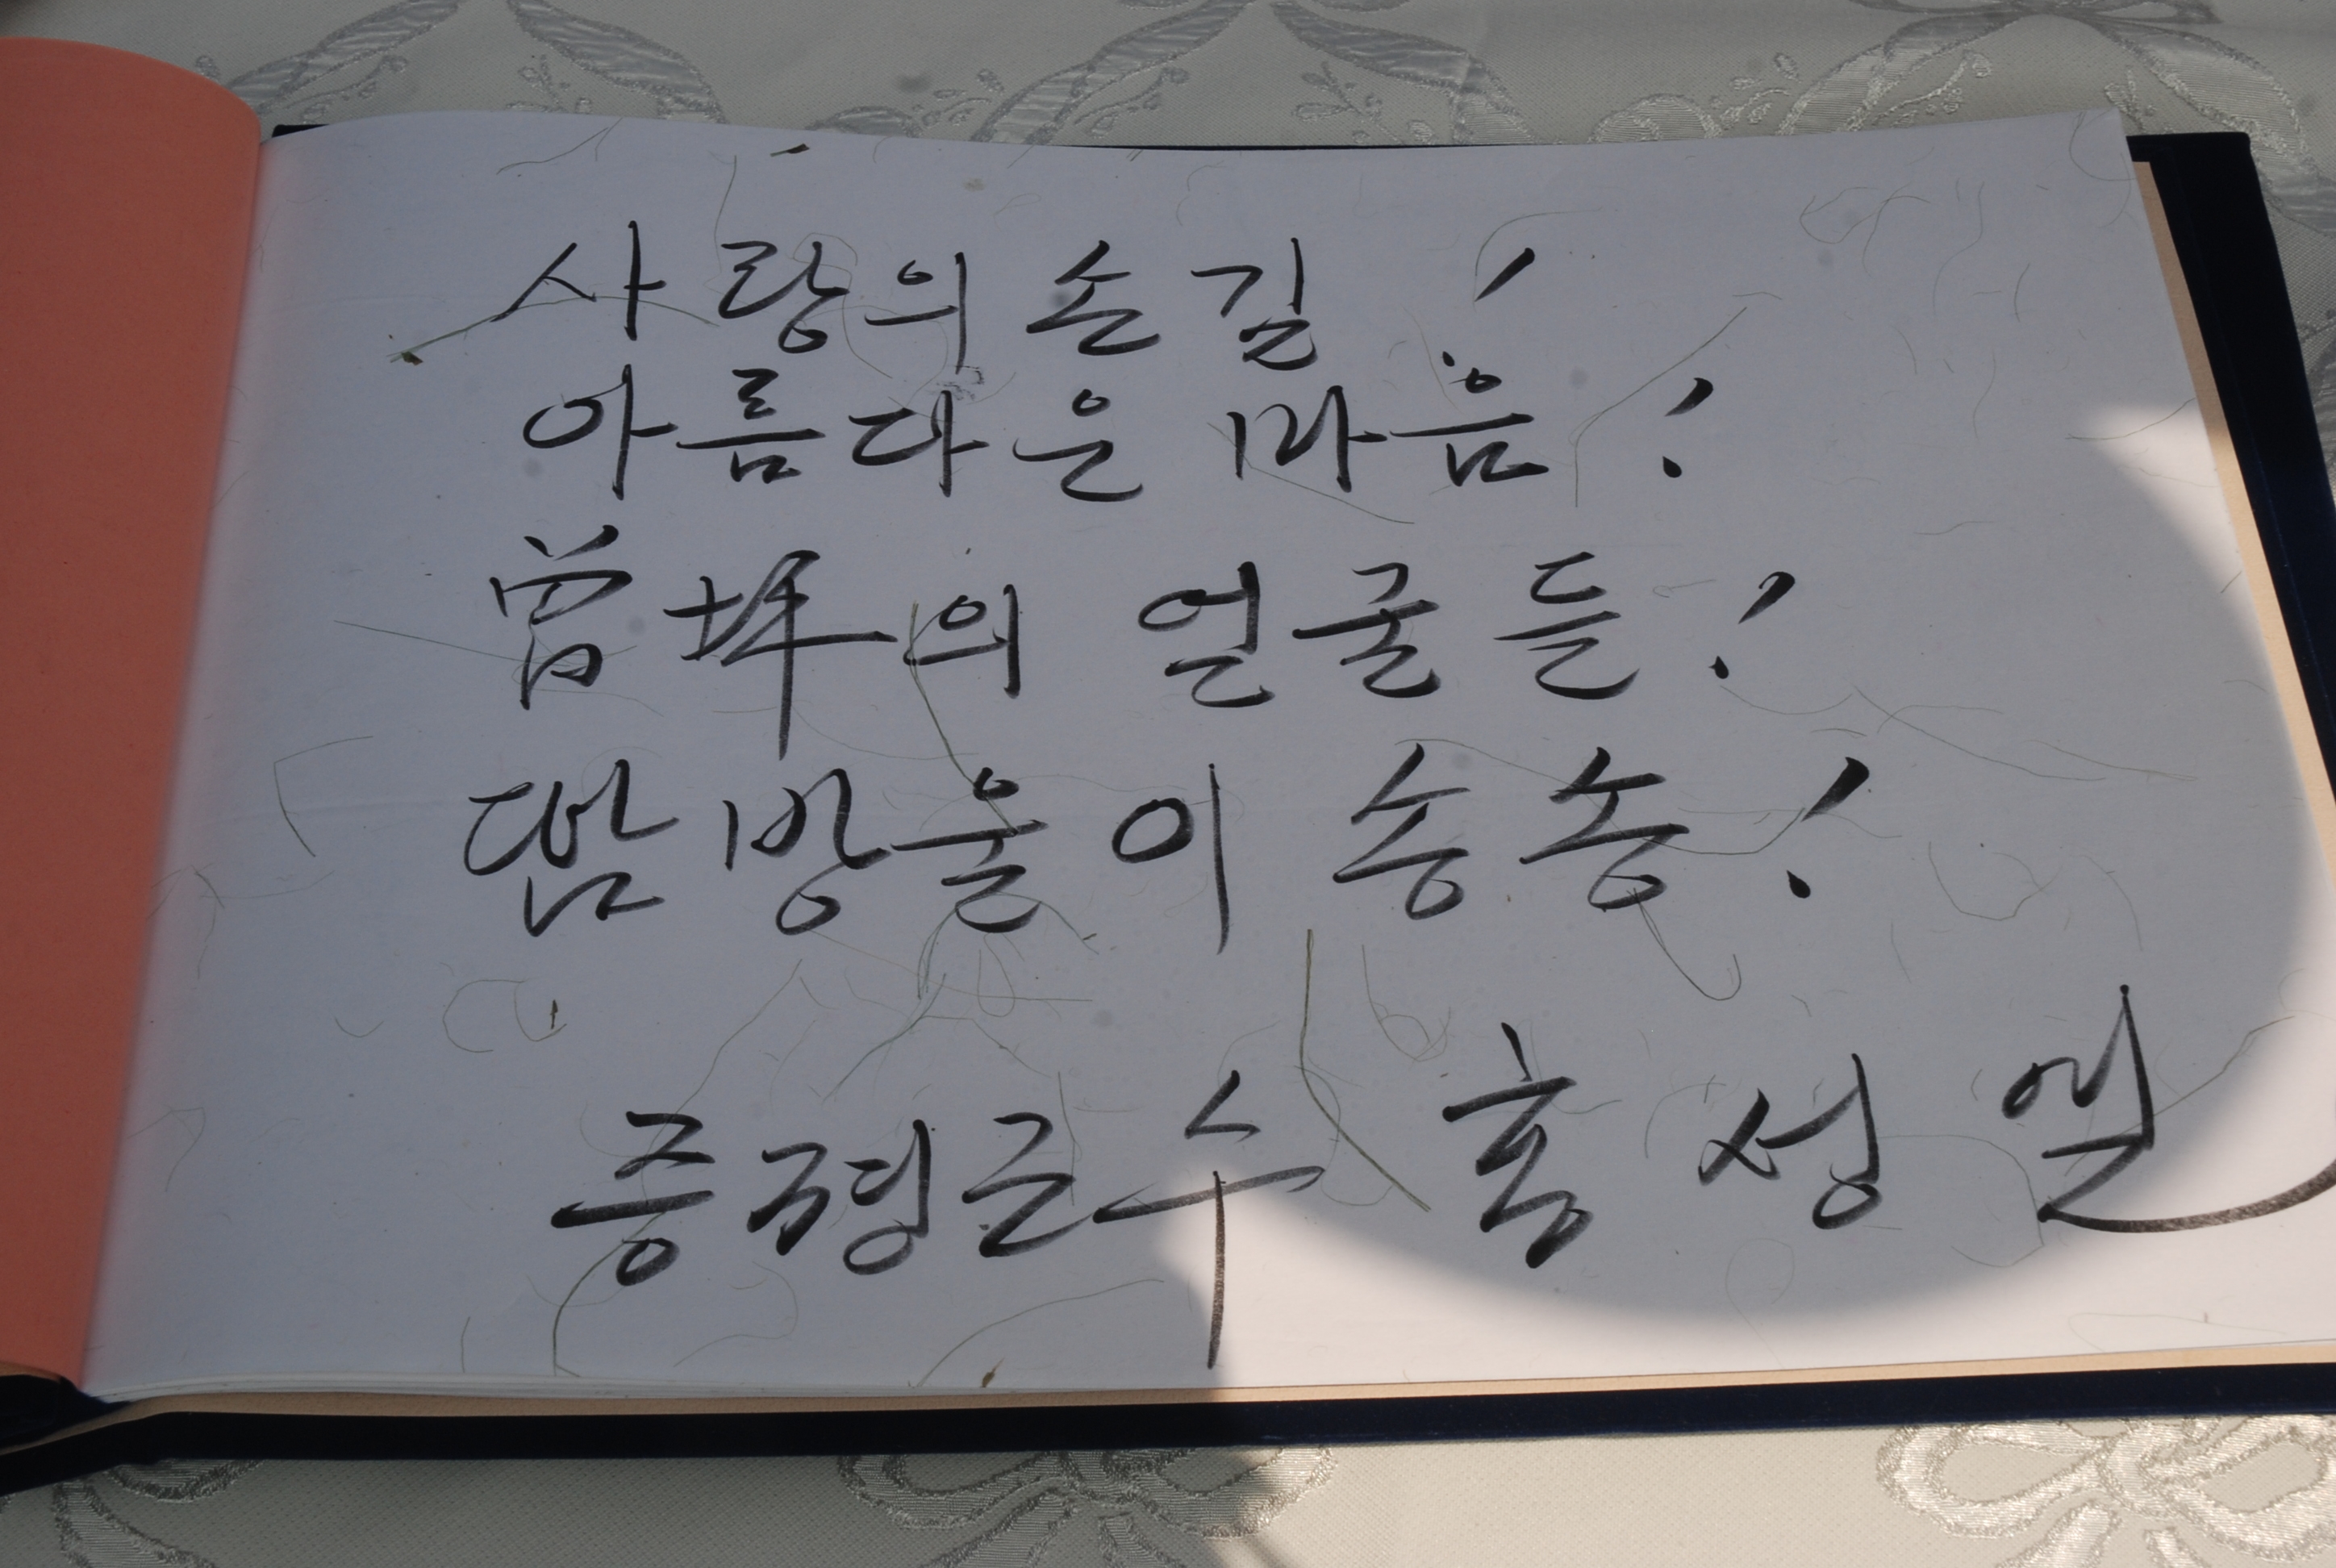 사랑의 손길!
아름다운 마음!
曾坪의 얼굴들!
땀방울이 송송!
증평군수 홍성열